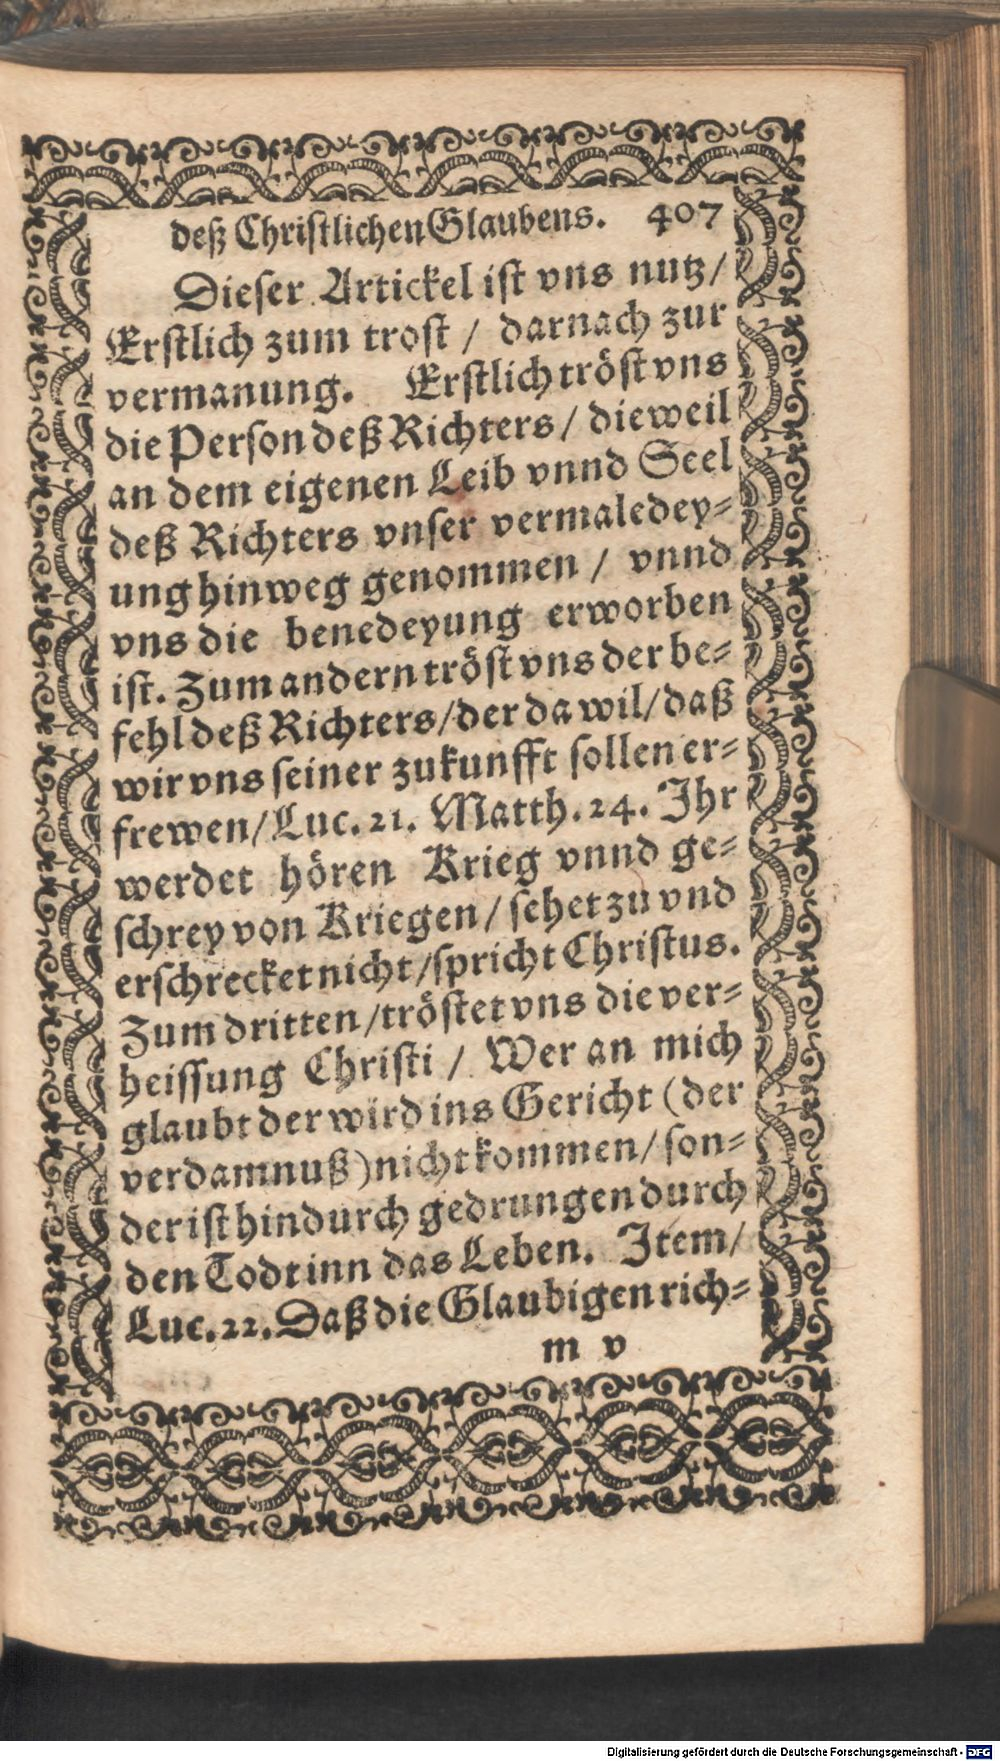 deß Christlichen Glaubens. 407
Dieser Artickel ist vns nutz/
Erstlich zum trost / darnach zur
vermanung. Erstlich tröst vns
die Person deß Richters / dieweil
an dem eigenen Leib vnnd Seel
deß Richters vnser vermaledey=
ung hinweg genommen / vnnd
vns die benedeyung erworben
ist. Zum andern tröst vns der be=
fehl deß Richters/der da wil/daß
wir vns seiner zukunfft sollen er=
frewen/Luc. 21. Matth. 24. Ihr
werdet hören Krieg vnnd ge=
schrey von Kriegen / sehet zu vnd
erschrecket nicht /spricht Christus.
Zum dritten /tröstet vns die ver=
heissung Christi / Wer an mich
glaubt der wird ins Gericht (der
verdamnuß) nicht kommen/ son=
der ist hindurch gedrungen durch
den Todt inn das Leben. Item/
Luc. 22. Daß die Glaubigen rich=
m v
Digitalisierung gefördert durch die Deutsche Forschungsgemeinschaft - DFG